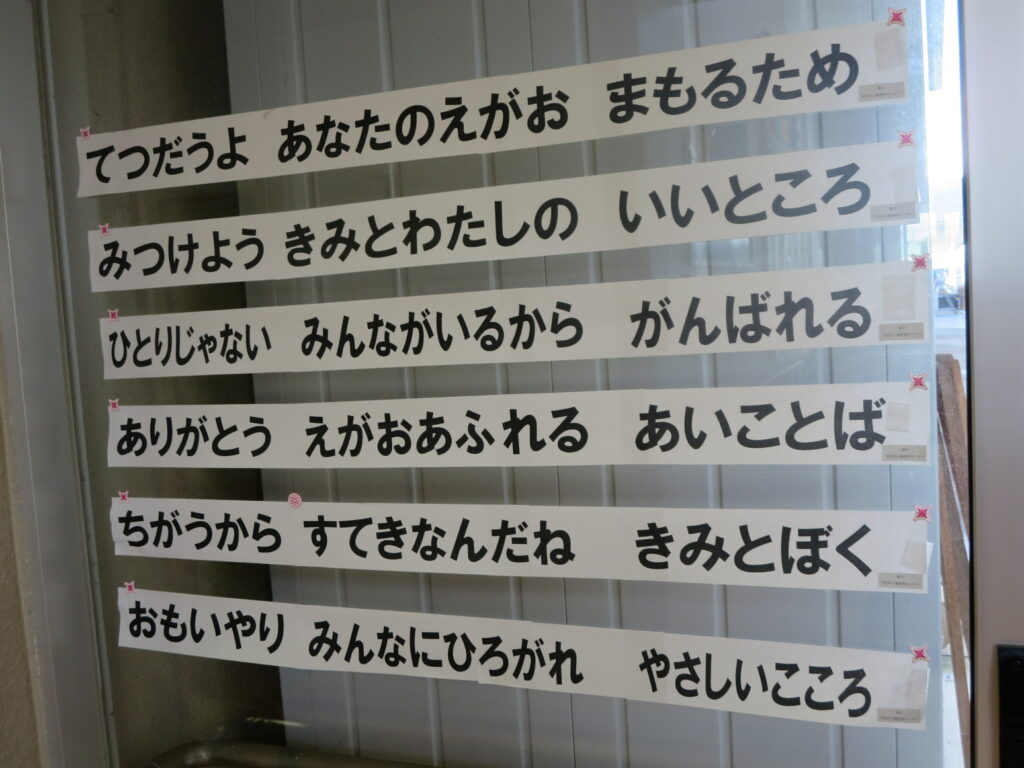 てつだうよ あなたのえがお まもるため
みつけよう きみとわたしの いいところ
ひとりじゃない みんながいるから がんばれる
ありがとう えがおあふれる あいことば
ちがうから すてきなんだね きみとぼく
おもいやり みんなにひろがれ やさしいこころ